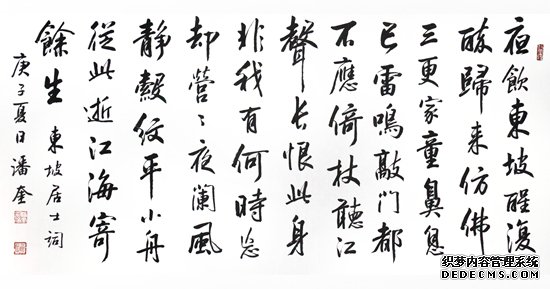 夜飲東坡醒復
醉歸来仿佛
三更家童鼻息
已雷鳴敲門都
不應倚杖聽江
聲长恨此身
非我有何時忘
却營〻夜闌風
静縠紋平小舟
從此逝江海寄
餘生 東坡居士詞
庚子夏日潘奎
织梦内容管理系统
DEDECMS.COM